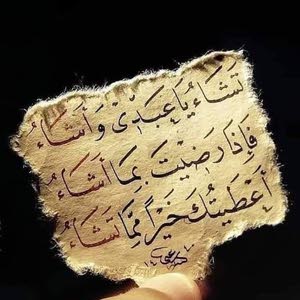 تَشَاءُ يَا عَبْدِي وَأَشَاءُ
فَإِذَا رَضِيْتَ بِمَا أَشَاءُ
أَعْطَيْتُكَ خَيْرًا مِمَّا تَشَاءُ